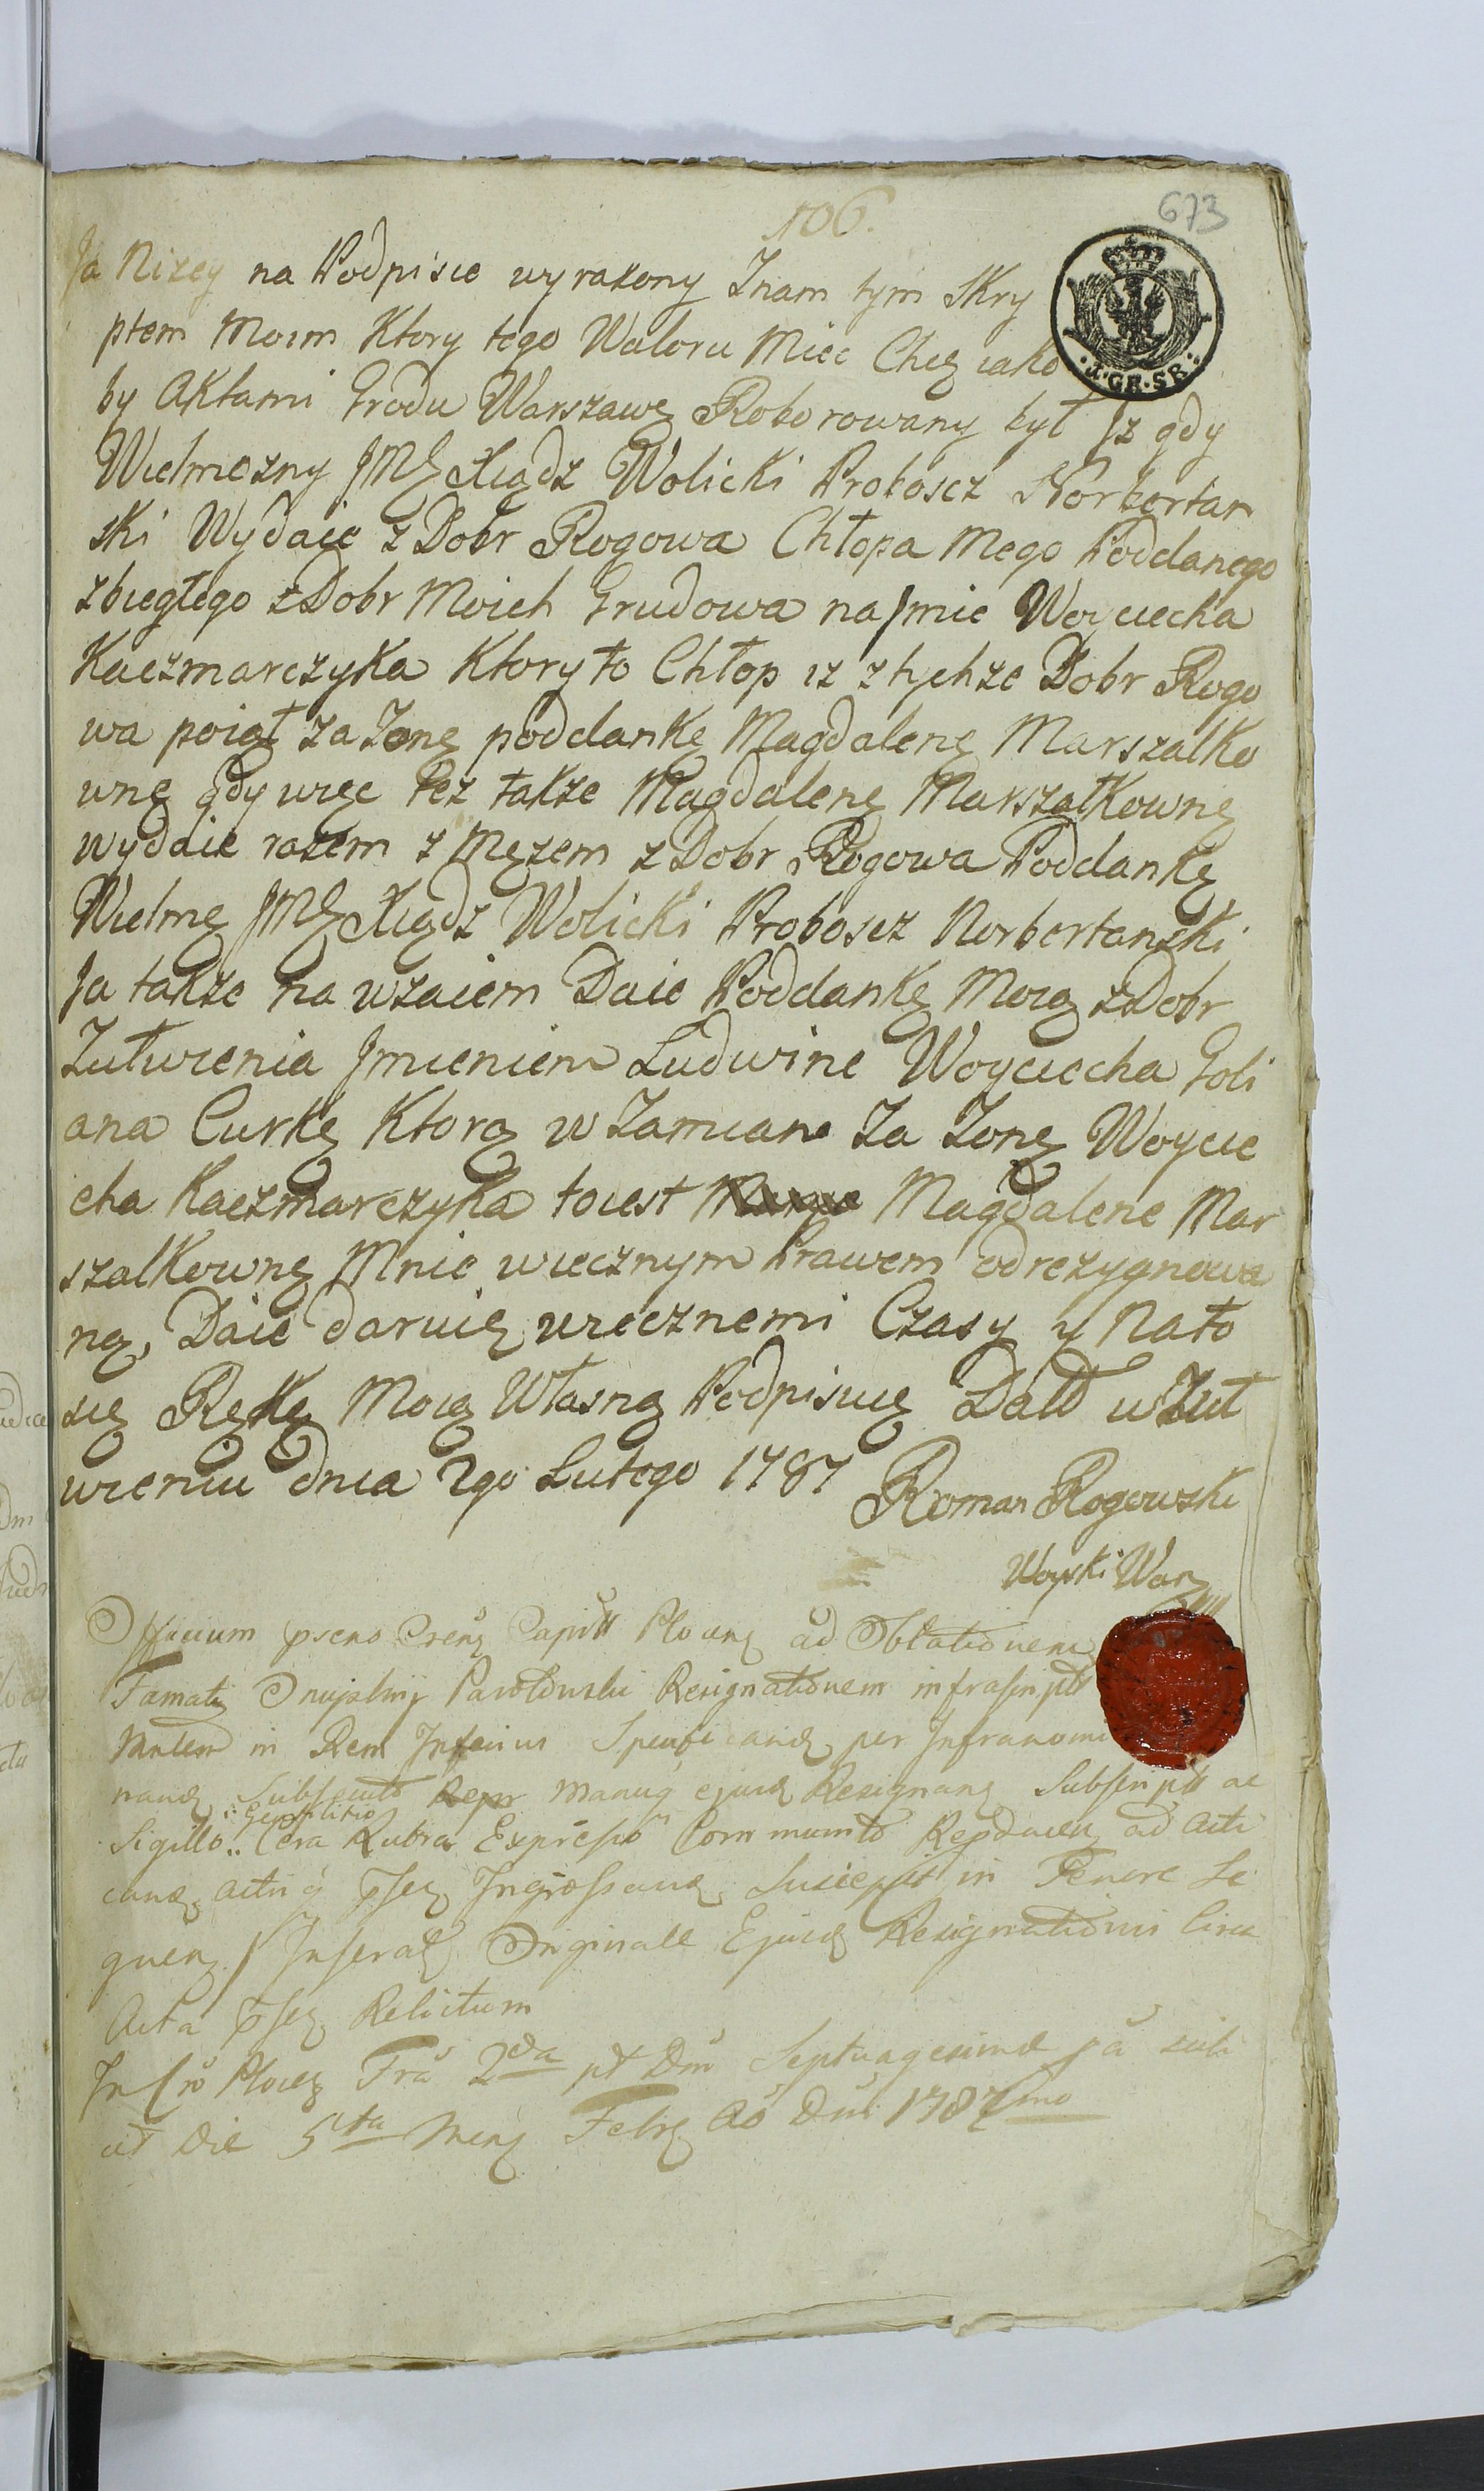 106.
673
Ja Nizey na Podpisie wyrazony Znam tym Skry
ptem Moim Ktory tego Waloru Miec Chcę iako
by Aktami Grodu Warszawę Roborowany był Jz gdy
Wielmozny JMę Xiądz Wolicki Proboscz Norbertan
ski Wydaie z Dobr Rogowa Chłopa Mego Poddanego
zbiegłego z Dobr Moich Grudowa na Jmie Woyciecha
Kaczmarczyka Ktory to Chłop iz z tychze Dobr Rogo
wa poiął za Zonę poddankę Magdalenę Marszalko
wnę gdy więc tez takze Magdalenę Marszałkownę
wydaie razem z Męzem z Dobr Rogowa Poddankę
Wielmę JMę Xiądz Wolicki Proboscz Norbertanski
Ja takze na wzaiem Daie Poddankę Moią z Dobr
Zutwienia Jmieniem Ludwine Woyciecha Goli
ana Curkę Ktorą w Zamiane Za Zonę Woycie
cha Kaczmarczyka toiest Magdalene Mar
szalkownę Mnie wiecznym Prawem odrezygnowa
ną, Daie daruię wiecznemi Czasy y Nato
się Ręką Moią Własną Podpisuię Datt w Zut
wieniu dnia 2go Lutego 1787
Roman Rogowski
Woyski War
I. GR. SR.
Officium ad Oblationem
Famati Pawłowski Resignationem infrascriptt
in Rem Inferius per Infranomi
nand Manuq ejusd Resignang Subscriptt ac
Gentilitio
Sigillo Cera Rubra Expresso Communito ad Acti
cand Suscepit in Tenore Se
queng Originale Ejusd Resignationis Circa
Acta Relictum
Fra 2da pt Dm Septuagesima
ut die 5ta Meng Febrg Ao Dni 1787mo